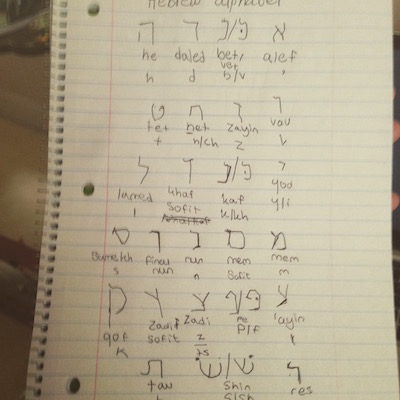 Hebrew alphabet
א בּ/ב ד ה
he daled bet, alef
vet
h d b/v '
ו ז ח ט
tet het zayin vav
t h/ch z v
י כּ/כ ך ל
lamed khaf kaf yod
l sofit k/kh y/i
מ ם נ ן ס
samekh final nun mem mem
s nun n sofit m
ע פּ/פ צ ץ ק
qof Zadi Zadi pe 'ayin
k sofit z P/F
ts
ר שׁ/שׂ ת
tav shin res
t s/sh